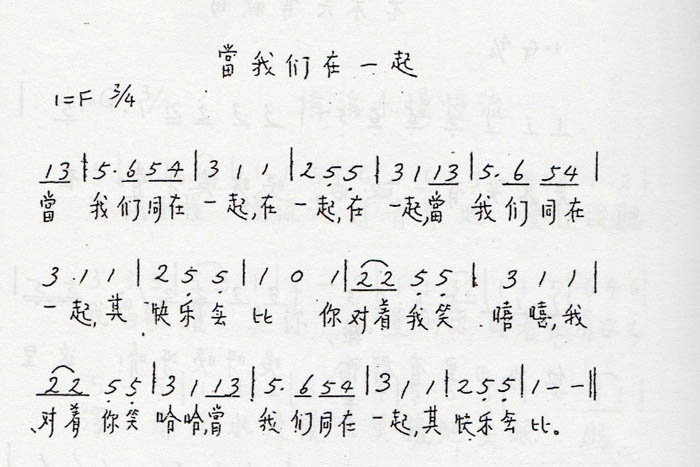 當我们在一起
1=F 3/4
13 | 5. 6 54 | 3 1 1 | 2 5 5 | 3 1 13 | 5. 6 54 |
當 我们同在 一起,在 一起,在 一起,當 我们同在
3. 1 1 | 2 5 5 | 1 0 1 | 22 55 | 3 1 1 |
一起,其 快乐无比 你对着我笑 嘻嘻,我
22 55 | 3 1 13 | 5. 654 | 3 1 1 | 2 5 5 | 1 - - ||
对着你笑 哈哈,當 我们同在 一起,其 快乐无比。